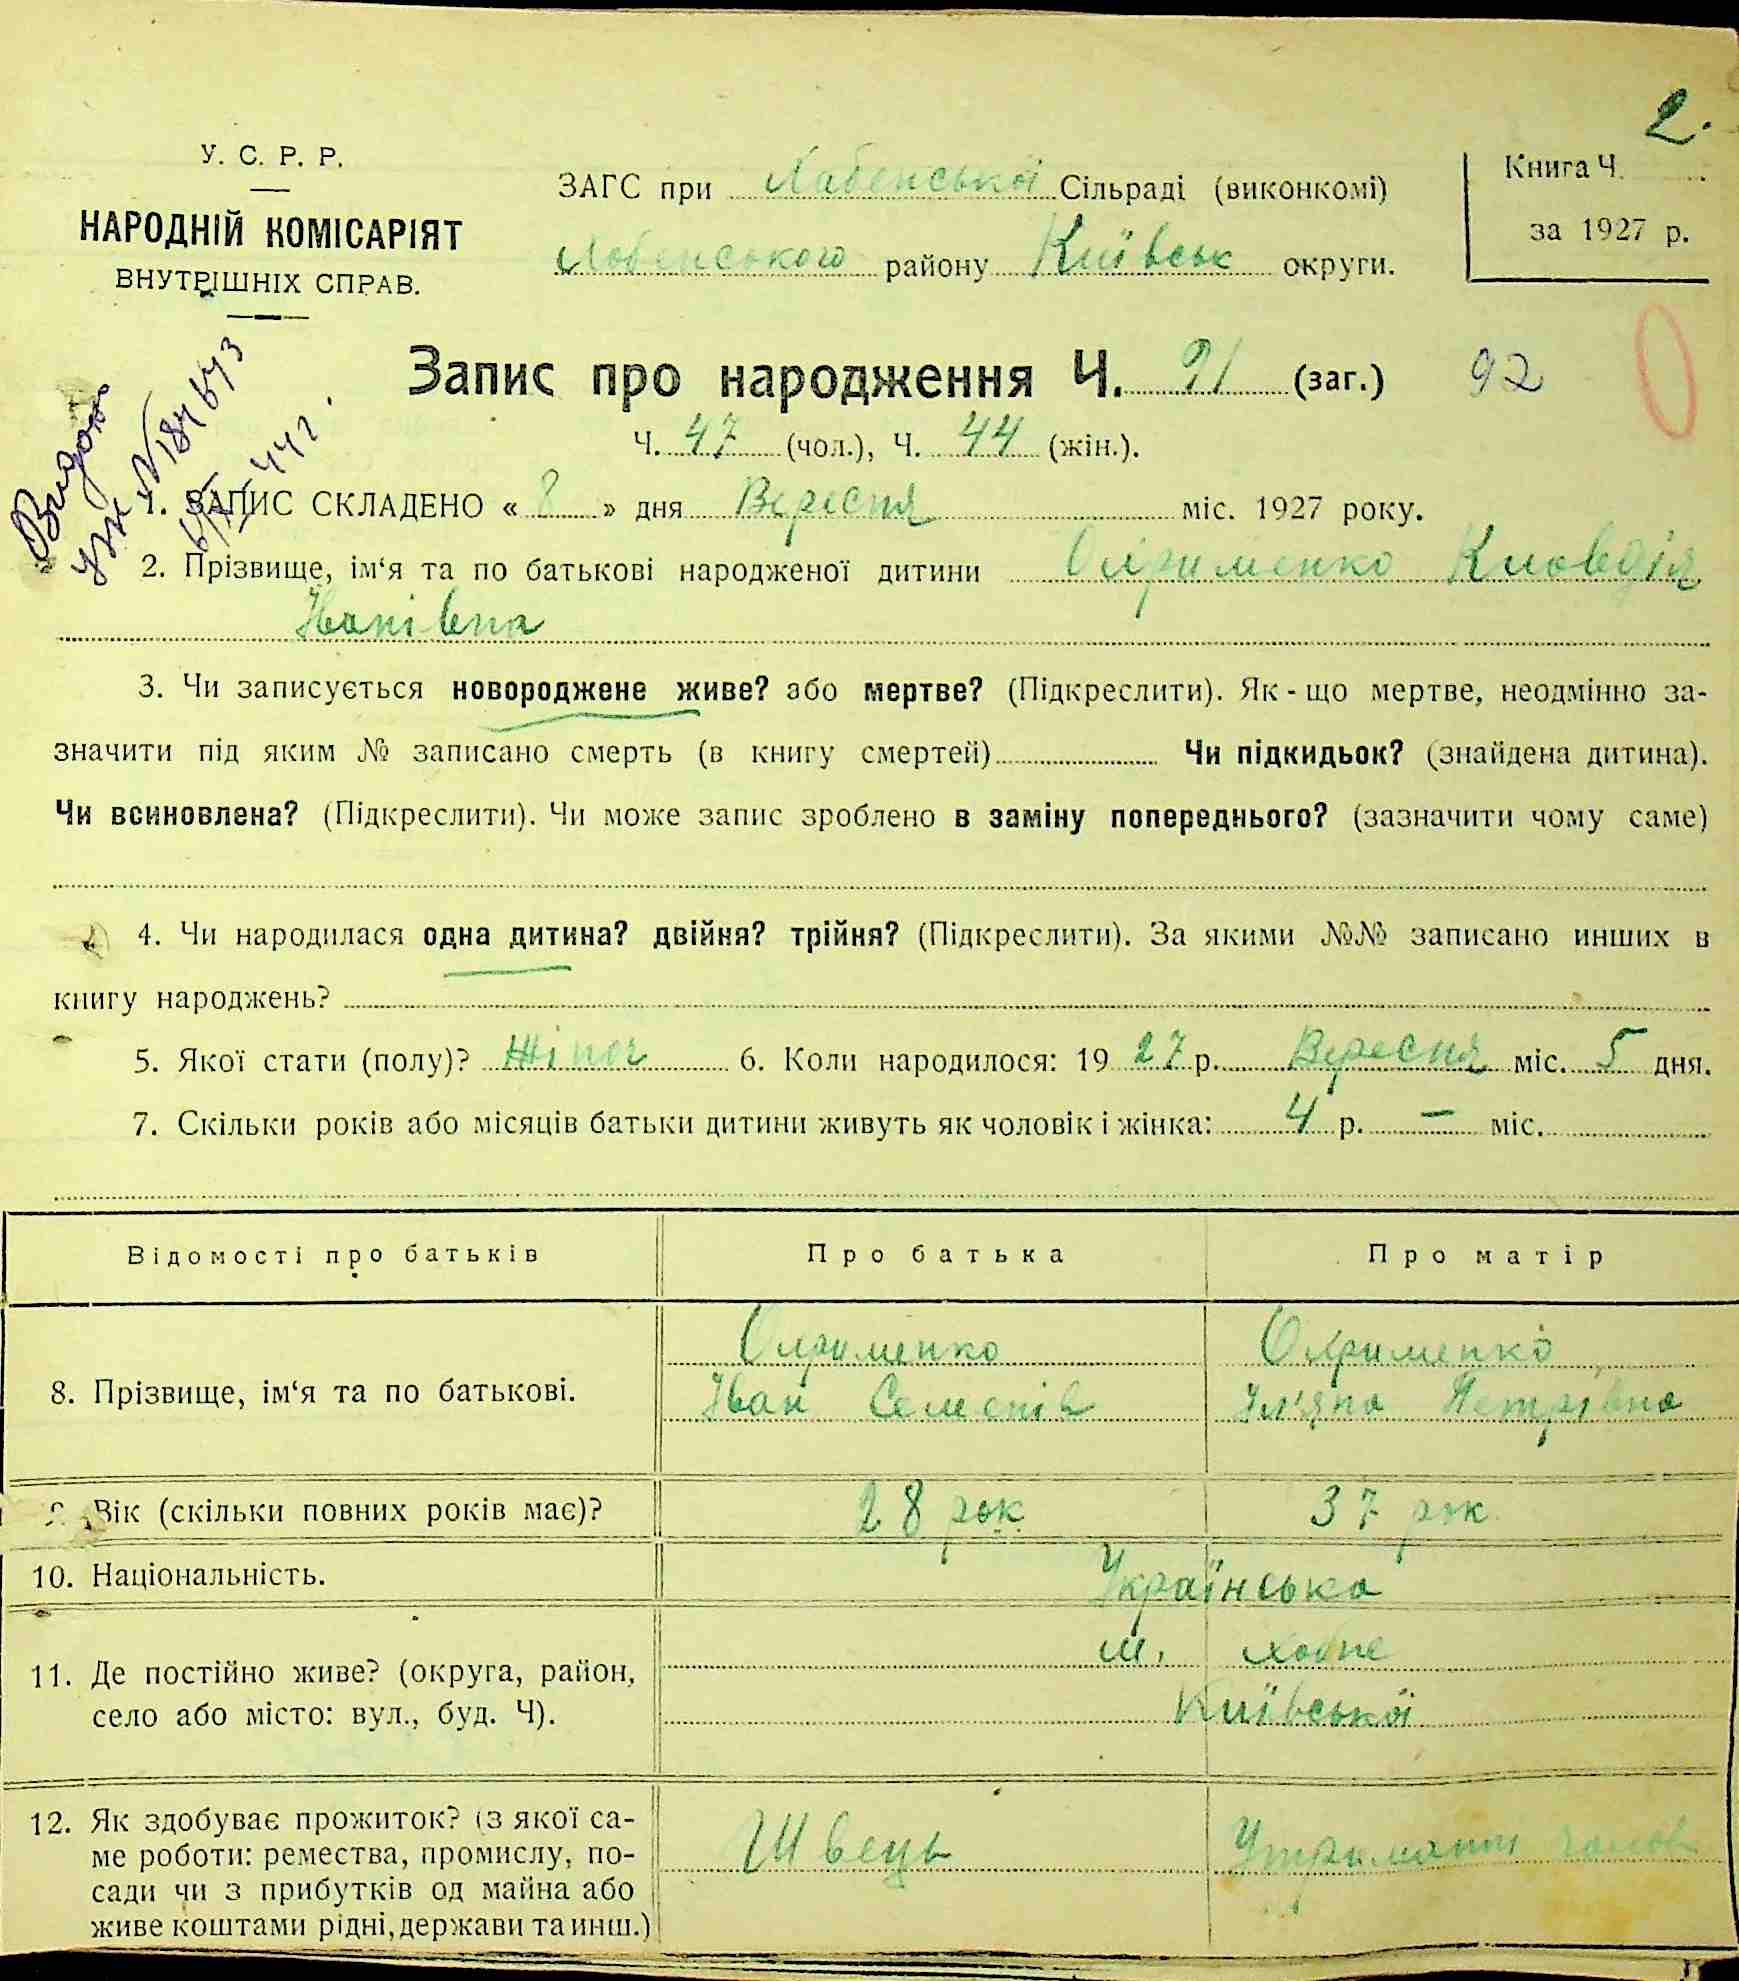 2.
У. С. Р. Р.
НАРОДНІЙ КОМІСАРІЯТ
ВНУТРІШНІХ СПРАВ.
ЗАГС при Хабенській Сільраді (виконкомі)
району Київськ округи.
Книга Ч.
за 1927 р.
Запис про народження Ч. 91 (заг.) 92
Ч. 47 (чол.), Ч. 44 (жін.).
1. ЗАПИС СКЛАДЕНО « 8 » дня Вересня міс. 1927 року.
2. Прізвище, ім'я та по батькові народженої дитини Кловдія
Іванівна
3. Чи записується новороджене живе? або мертве? (Підкреслити). Як-що мертве, неодмінно за-
значити під яким № записано смерть (в книгу смертей) Чи підкидьок? (знайдена дитина).
Чи всиновлена? (Підкреслити). Чи може запис зроблено в заміну попереднього? (зазначити чому саме)
4. Чи народилася одна дитина? двійня? трійня? (Підкреслити). За якими №№ записано инших в
книгу народжень?
5. Якої стати (полу)? Жіноч 6. Коли народилося: 19 27 р. Вересня міс. 5 дня.
7. Скільки років або місяців батьки дитини живуть як чоловік і жінка: 4 р. — міс.
Відомості про батьків Про батька Про матір
8. Прізвище, ім'я та по батькові.
Іван Семенів Петрівна
9. Вік (скільки повних років має)? 28 рок 37 рок
10. Національність. Українська
11. Де постійно живе? (округа, район,
село або місто: вул., буд. Ч).
м. Хабне
Київської
12. Як здобуває прожиток? (з якої са-
ме роботи: ремества, промислу, по-
сади чи з прибутків од майна або
живе коштами рідні, держави та инш.)
Швець